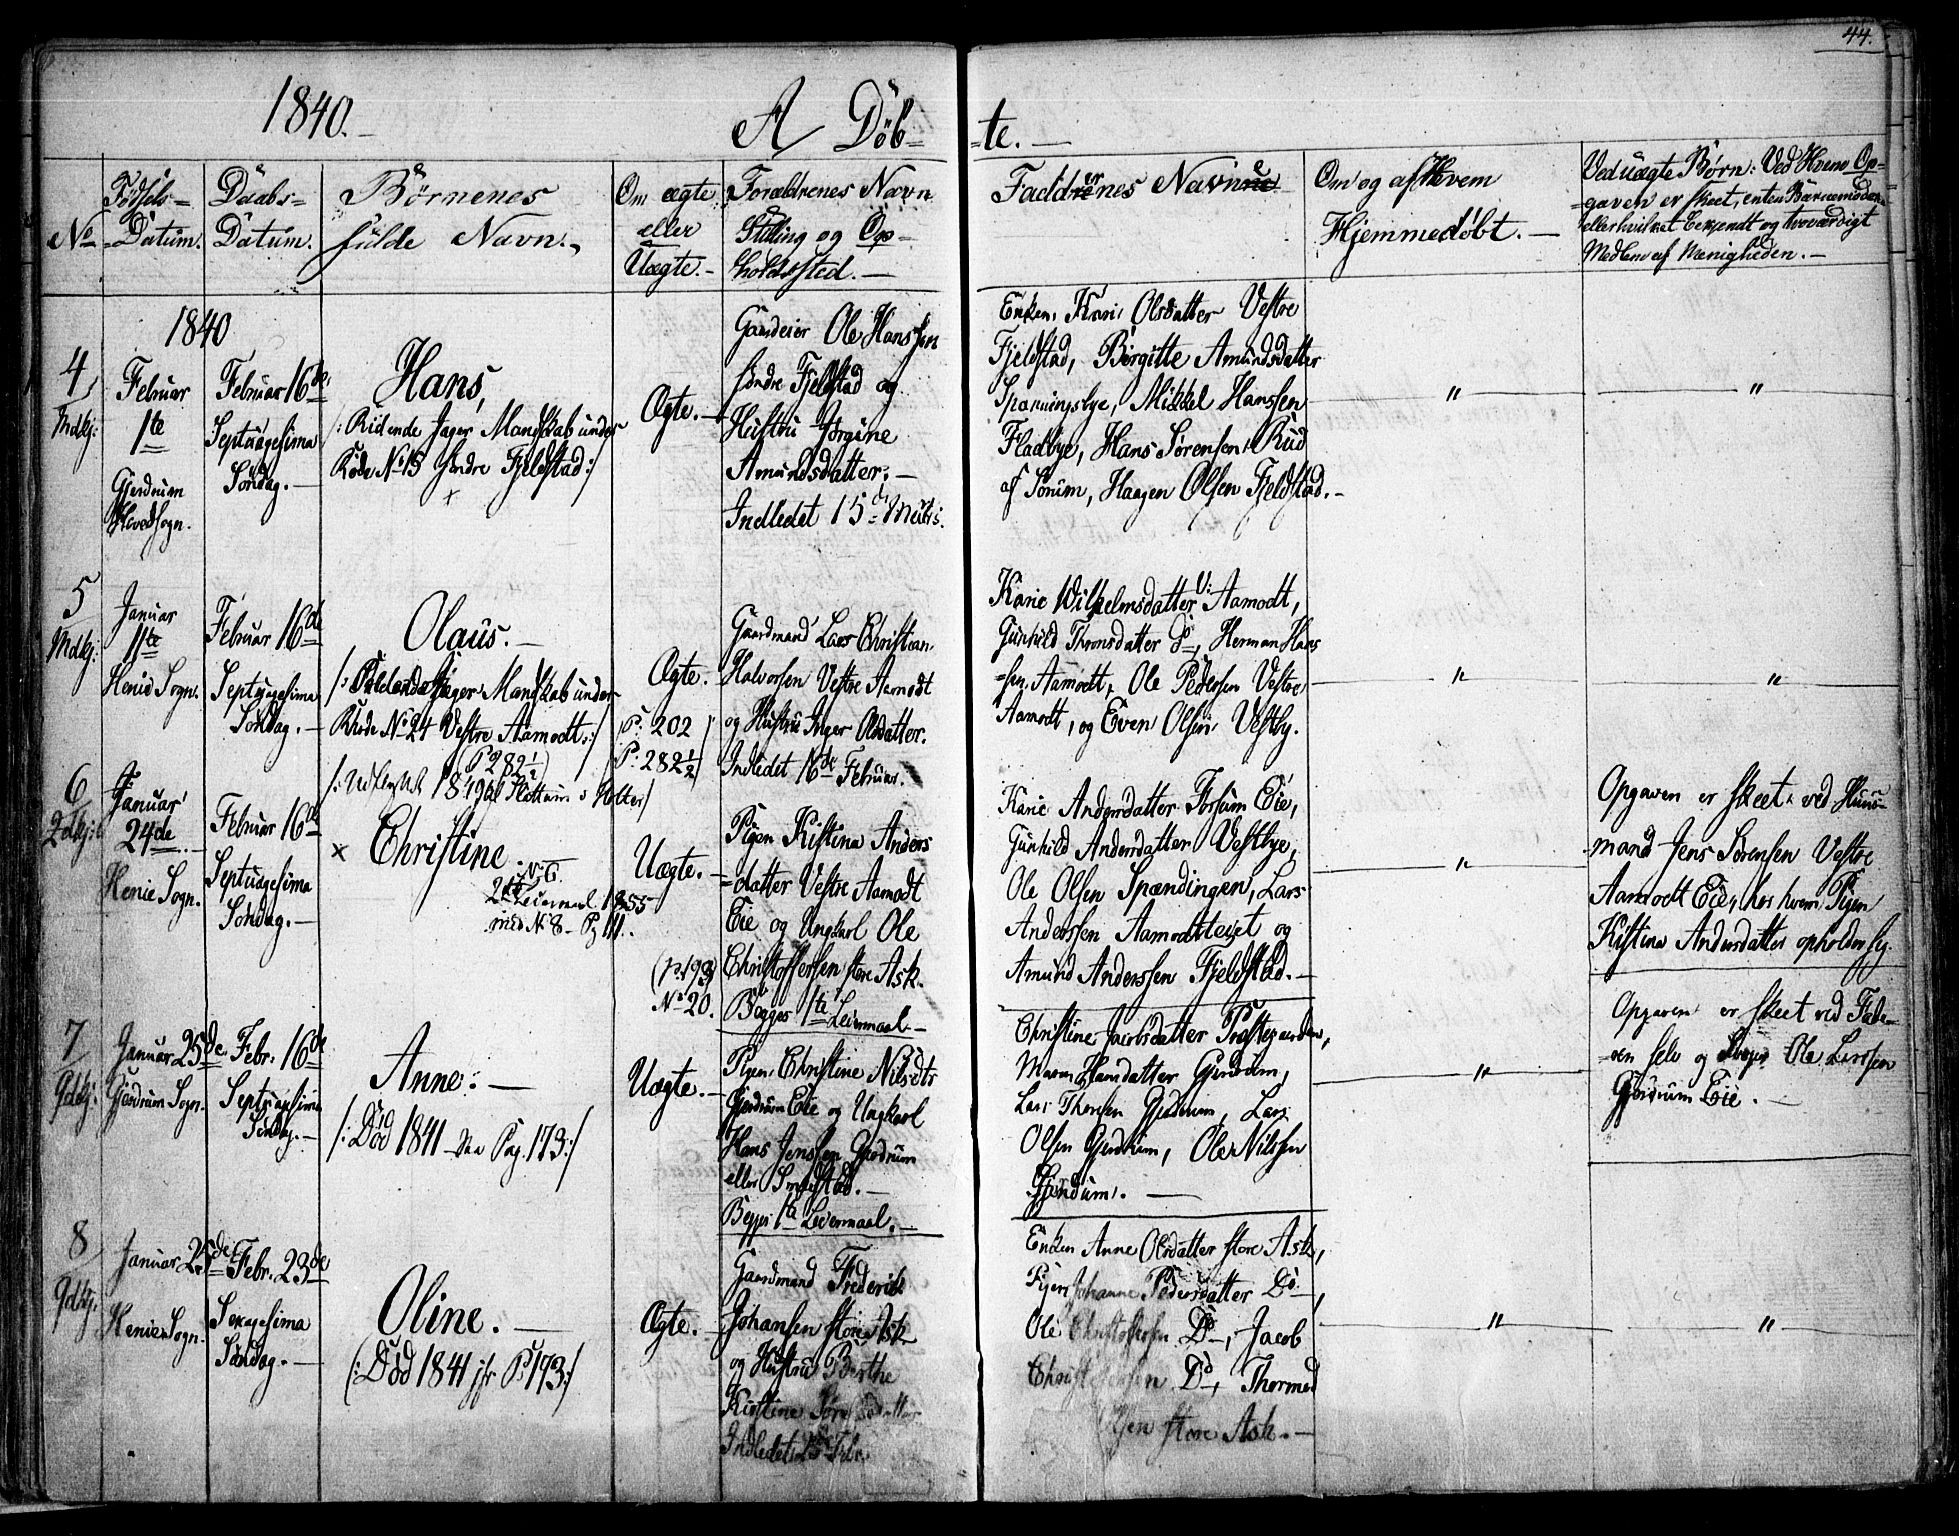 44.
1840.
A/ Döb=
=te.
No
Fødsels=
=Datum.
Daabs=
Datum.
Børnenes
fulde Navn.
Om ægte
eller
Uægte.
Forældrenes Navn
Stilling og Op=
holdssted.
Faddrenes Navne
Om og af Hvem
Hjemmedøbt.
Ved uægte Børn: Ved Hvem Op=
=gaven er skeet, enten Barnemoderen
eller hvilket bekjendt og troværdigt
Medlem af Menigheden.
1840
4/
Mdkj:
Februar
1te
Gjerdrum
Hovedsogn.
Februar 16de
Septuagesima
Søndag.
Hans,
/: Ridende Jager Mandskab under
Rode No 15 søndre Fjeldstad:/
x
Ægte.
Gaardeier Ole Hanssen
søndre Fjeldstad og
Hustru Jørgine
Amundsdatter.
Indledet 15de Marts.
Enken Kari Olsdatter Vestre
Fjeldstad, Birgitte Amundsdatter
Spænningsbye, Mikkel Hanssen
Fladbye, Hans Sørensen Rud
af Sørum, Haagen Olsen Fjeldstad.
"
"
5
Mdkj:
Januar
11te
Henie Sogn.
Februar 16de
Septuagesima
Søndag.
Olaus.
/: Jager Mandskab under
Rode No 24 Vestre Aamodt:/
(P 282½)
/: Udflyttet 18 til i Holter/
Ægte.
P: 202
P: 282½
Gaardmand Lars Christian
Halvorsen Vestre Aamodt
og Hustru Inger Olsdatter.
Indledet 16de Februar.
Karie Wilhelmsdatter V: Aamodt,
Gunhild Thronsdatter Do, Herman Hans
=sen Aamodt, Ole Pedersen Vestre
Aamodt, og Even Olsen Vestby.
"
"
6
2dkj:
Januar
24de
Henie Sogn.
Februar 16de
Septuagesima
Søndag.
x Christine
No 6.
2det Leiermaal 1855
med No 8 Pg 111.
Uægte.
(p. 193)
No 20.
Pigen Kistina Anders
=datter Vestre Aamodt
Eie og Ungkarl Ole
Christoffersen store Ask.
Begges 1te Leiermaal
Karie Andersdatter Forsum Eie,
Gunhild Andersdatter Vestbye,
Ole Olsen Spændingen, Lars
Anderssen Aamodteiet og
Amund Anderssen Fjeldstad.
"
Opgaven er skeet ved Huus=
mand Jens Sørensen Vestre
Aamodt Eie, hos hvem Pigen
Kistina Andersdatter opholder sig.
7
Januar 25de
Gjerdrum Sogn.
Febr. 16de
Septuagesima
Søndag.
Anne.
/: Død 1841 Pag. 173:/
Uægte.
Pigen Christine Nilsdtr
Gjerdrum Eie og Ungkarl
Hans Jenssen Gjerdrum
eller Smedstad.
Begges 1te Leiermaal.
Christine Jacobsdatter Præstegaarden,
Maren Hansdatter Gjerdrum,
Lars Thorsen Gjerdrum, Lars
Olsen Gjerdrum, Ole Nilssen
Gjerdrum.
"
Opgaven er skeet ved Fade=
ren selv og Ole Larssen
Gjerdrum Eie.
8
Januar 25de
Henie Sogn.
Febr. 23de
Sexagesima
Søndag.
Oline.
(: Død 1841 jfr P 173:/
Ægte.
Gaardmand Frederik
Johansen store Ask
og Hustru Berthe
Kirstine
Indledet Febr.
Enken Anne Olsdatter store Ask,
Pigen Johanne Pedersdatter Do,
Ole Christoffersen Do, Jacob
Do, Thormod
store Ask.
"
"